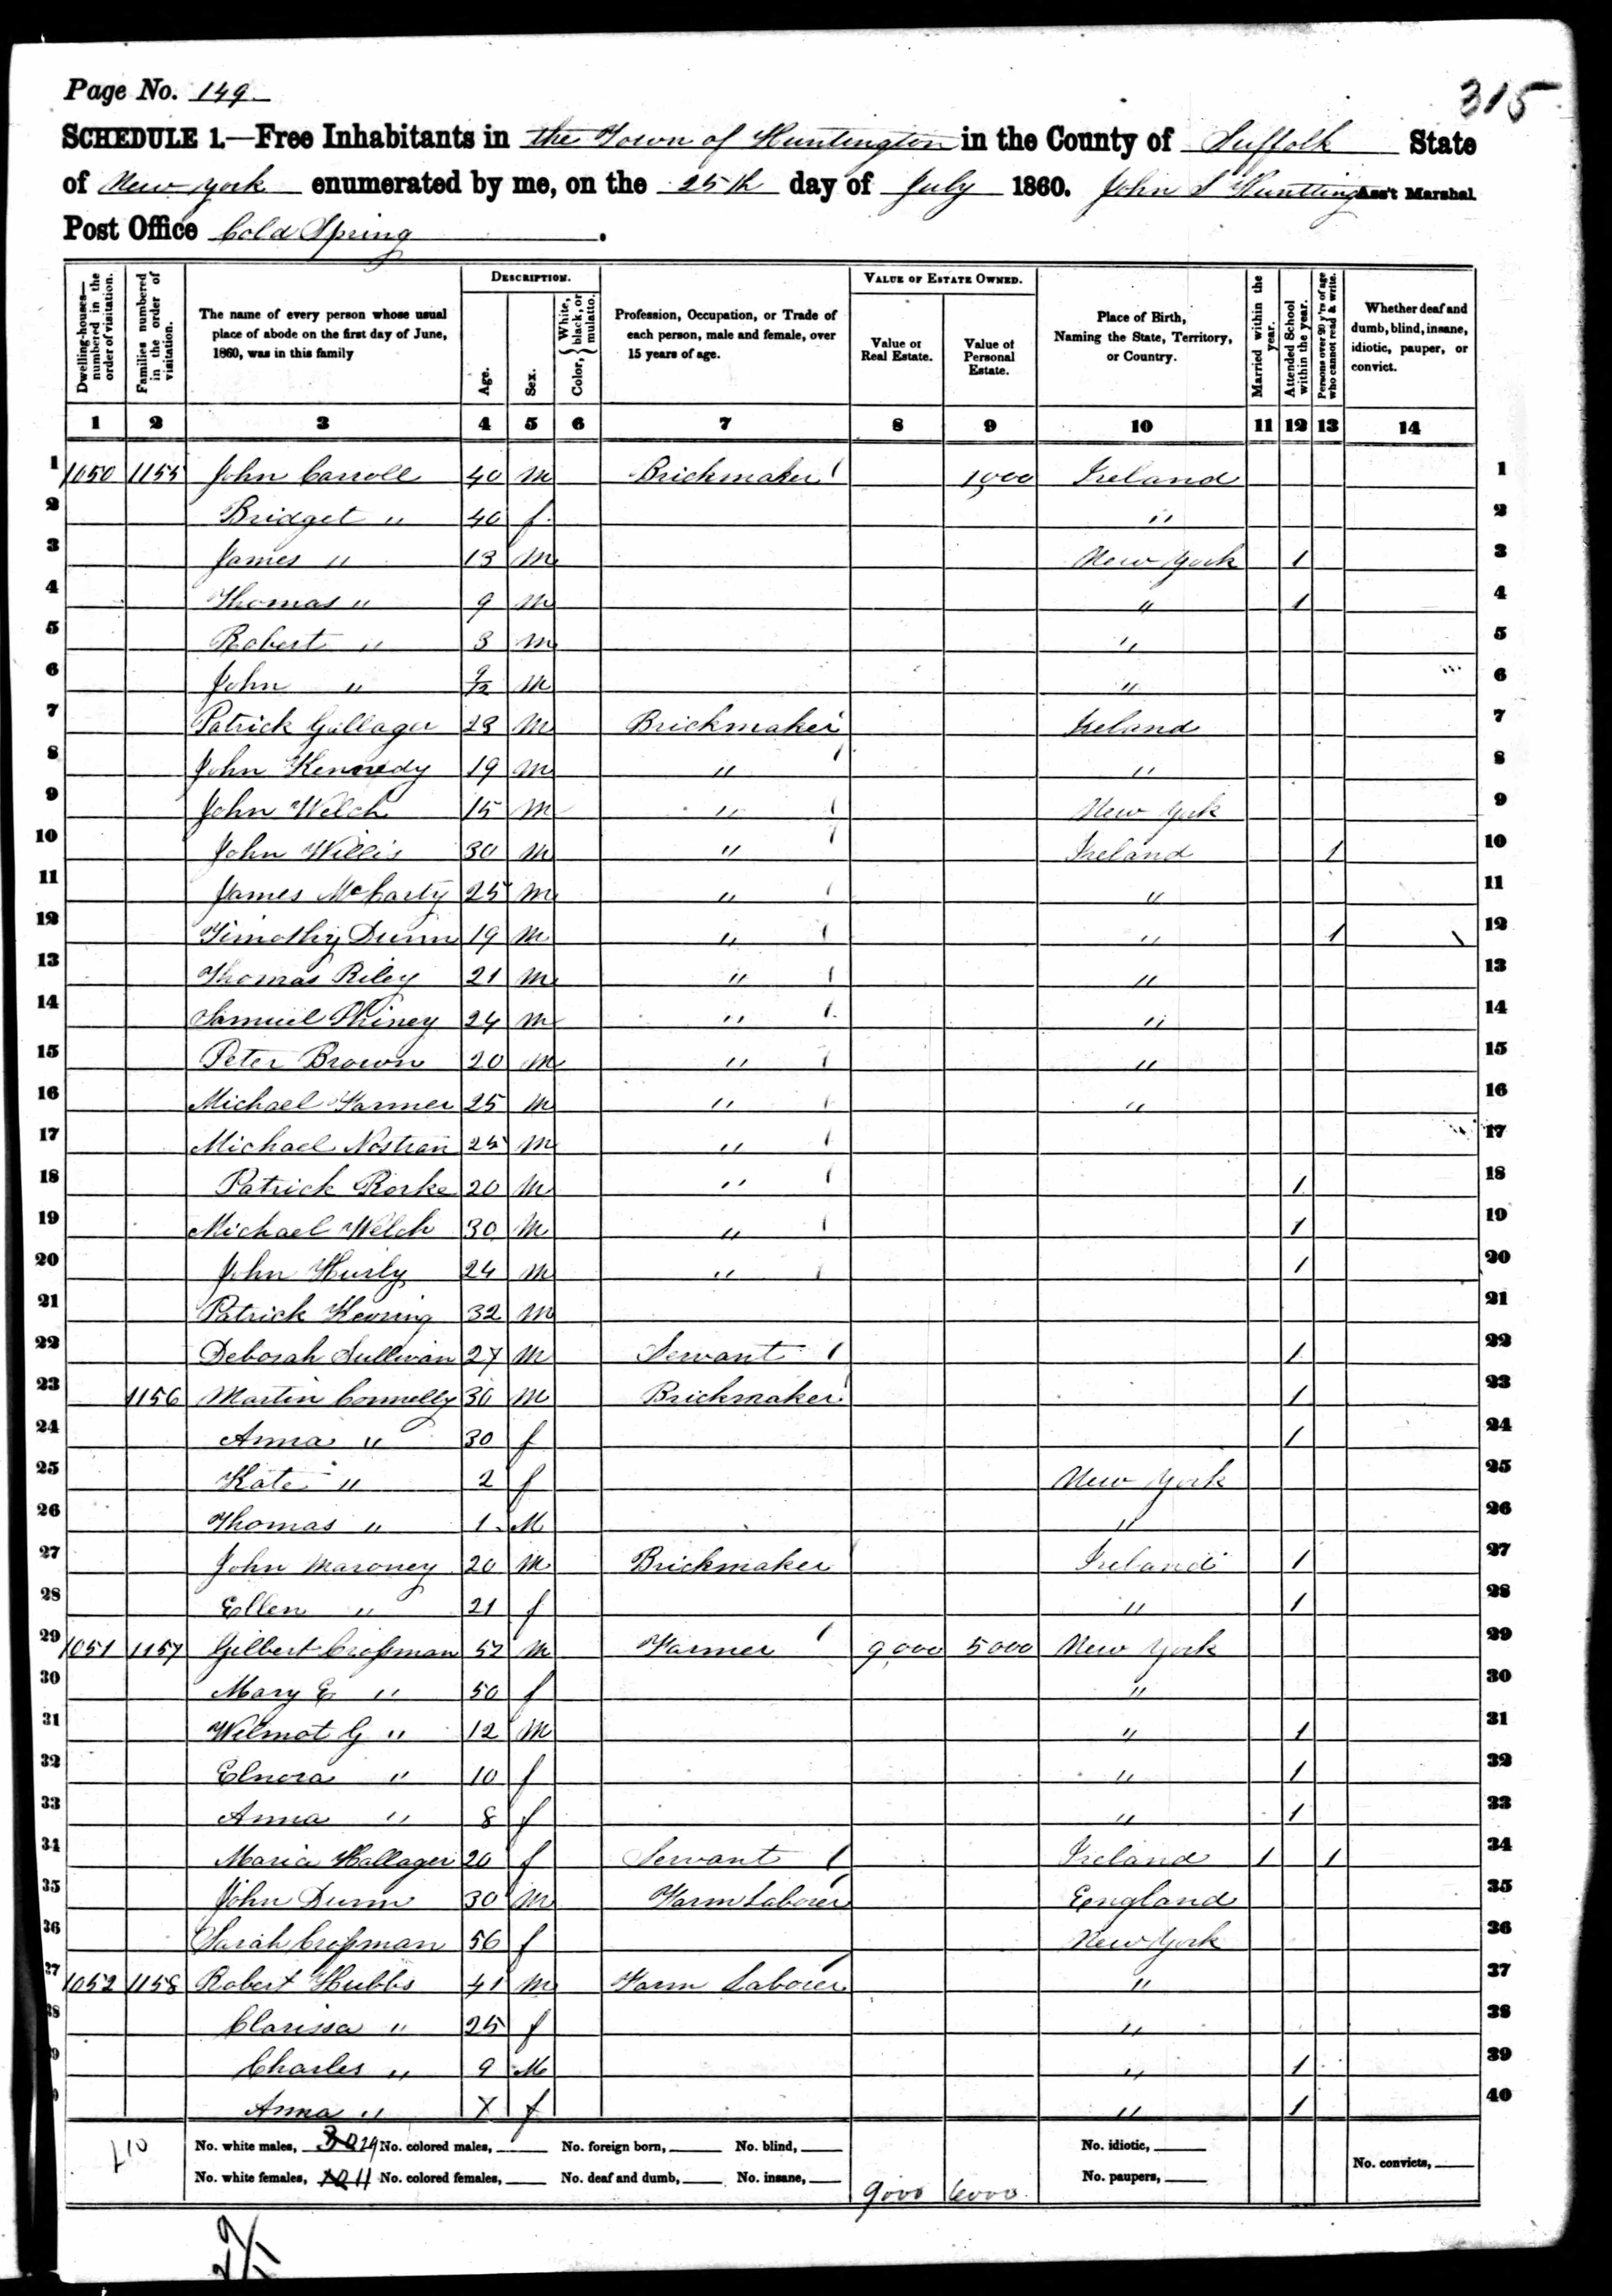 Page No. 149
315
SCHEDULE 1.—Free Inhabitants in the Town of Huntington in the County of Suffolk State
of New York enumerated by me, on the 25th day of July 1860. John S Hunting Ass't Marshal
Post Office Cold Spring.
Dwelling-houses—numbered in the order of visitation.
Families numbered in the order of visitation.
The name of every person whose usual place of abode on the first day of June, 1860, was in this family
DESCRIPTION.
Age.
Sex.
Color, { White, black, or mulatto.
Profession, Occupation, or Trade of each person, male and female, over 15 years of age.
VALUE OF ESTATE OWNED.
Value of Real Estate.
Value of Personal Estate.
Place of Birth, Naming the State, Territory, or Country.
Married within the year.
Attended School within the year.
Persons over 20 y'rs of age who cannot read & write.
Whether deaf and dumb, blind, insane, idiotic, pauper, or convict.
1 2 3 4 5 6 7 8 9 10 11 12 13 14
1 1050 1155 John Carroll 40 M Brickmaker 1,000 Ireland 1
2 Bridget " 40 f " 2
3 James " 13 M New York 1 3
4 Thomas " 9 M " 1 4
5 Robert " 3 M " 5
6 John " 9/12 M " 6
7 Patrick Gallager 23 M Brickmaker Ireland 7
8 John Kennedy 19 M " " 8
9 John Welch 15 M " New York 9
10 John Willis 30 M " Ireland 1 10
11 James McCarty 25 M " " 11
12 Timothy Dunn 19 M " " 1 12
13 Thomas Riley 21 M " " 13
14 Samuel Phiney 24 M " " 14
15 Peter Brown 20 M " " 15
16 Michael Farmer 25 M " " 16
17 Michael Nostran 25 M " 17
18 Patrick Rorke 20 M " 1 18
19 Michael Welch 30 M " 1 19
20 John Hurly 24 M " 1 20
21 Patrick 32 M 21
22 Deborah Sullivan 27 M Servant 1 22
23 1156 Martin Connelly 30 M Brickmaker 1 23
24 Anna " 30 f 1 24
25 Kate " 2 f New York 25
26 Thomas " 1 M " 26
27 John Maroney 20 M Brickmaker Ireland 1 27
28 Ellen " 21 f " 1 28
29 1051 1157 Gilbert Crossman 52 M Farmer 9,000 5000 New York 29
30 Mary E " 50 f " 30
31 Wilmot G " 12 M " 1 31
32 Elnora " 10 f " 1 32
33 Anna " 8 f " 1 33
34 Maria Hallager 20 f Servant Ireland 1 1 34
35 John Dunn 30 M Farm Laborer Eengland 35
36 Sarah Crossman 56 f New York 36
37 1052 1158 Robert Hubbs 41 M Farm Laborer " 37
38 Clarissa " 25 f " 38
39 Charles " 9 M " 1 39
Anna " 7 f " 1 40
No. white males, 30 29 No. colored males, No. foreign born, No. blind, No. idiotic,
No. white females, 10 11 No. colored females, No. deaf and dumb, No. insane, 9000 6000 No. paupers, No. convicts,
29
11